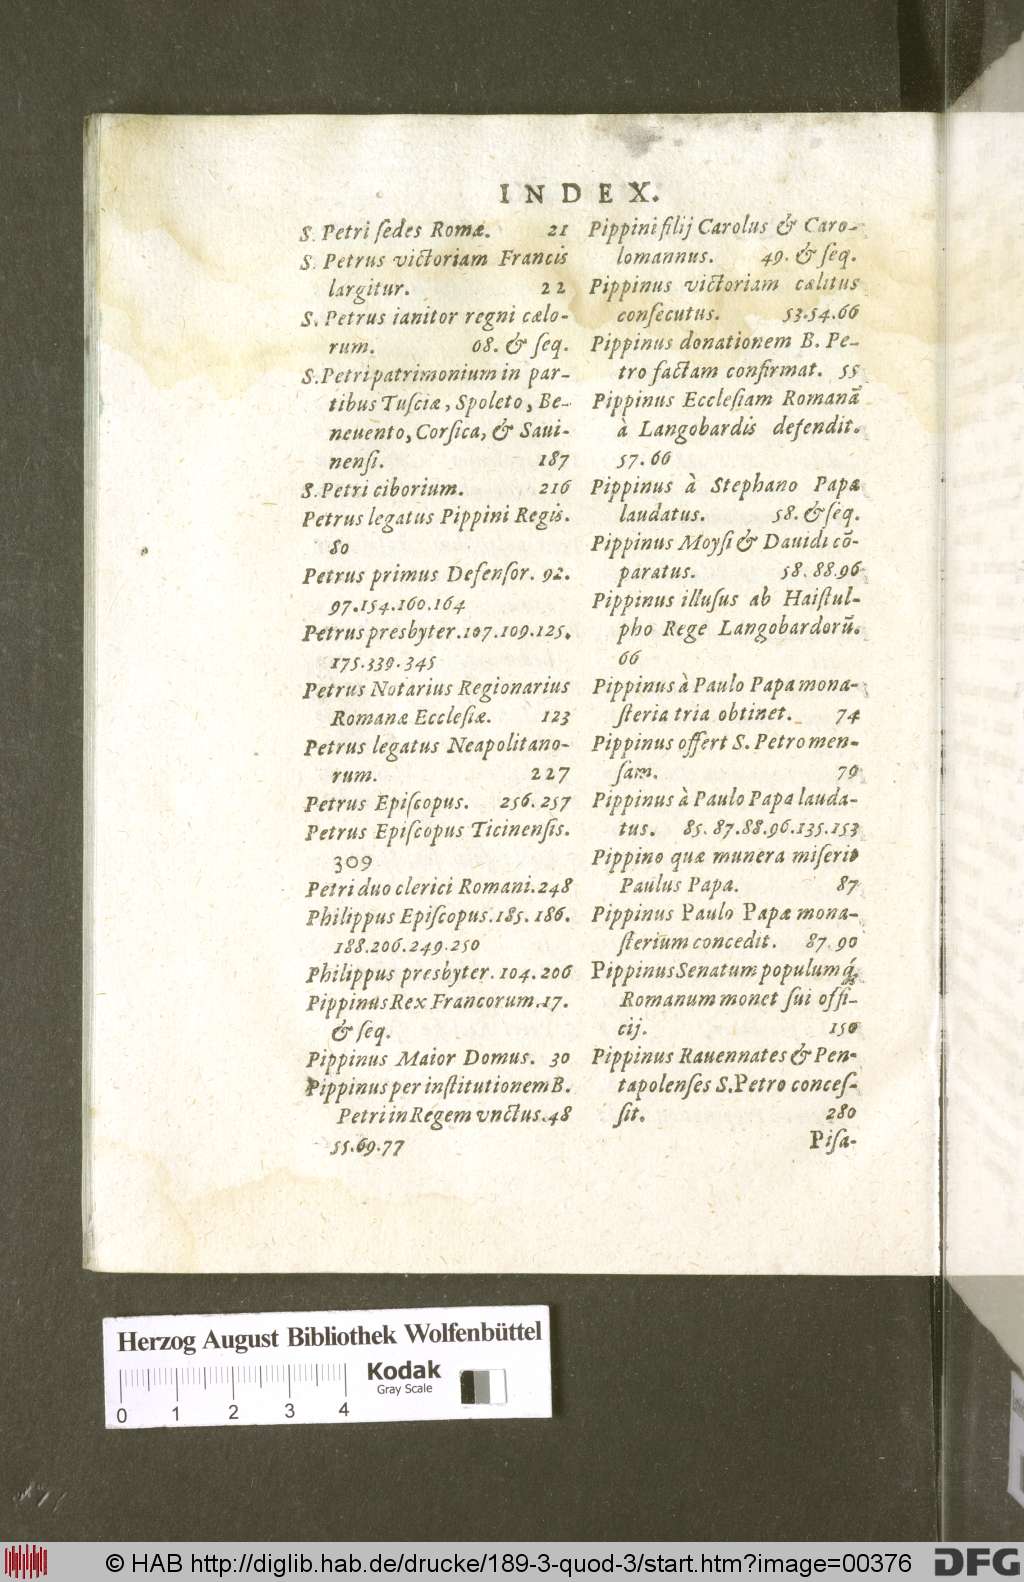 INDEX.
S. Petri ſedes Romæ. 21
S. Petrus victoriam Francis
largitur. 22
S. Petrus ianitor regni cælo-
rum. 08. & ſeq.
S. Petri patrimonium in par-
tibus Tuſciæ, Spoleto, Be-
neuento, Corſica, & Saui-
nenſi. 187
S. Petri ciborium. 216
Petrus legatus Pippini Regis.
80
Petrus primus Defenſor. 92.
97.154.160.164
Petrus presbyter. 107.109.125.
175.339.345
Petrus Notarius Regionarius
Romanæ Eccleſiæ. 123
Petrus legatus Neapolitano-
rum. 227
Petrus Epiſcopus. 256.257
Petrus Epiſcopus Ticinenſis.
309
Petri duo clerici Romani. 248
Philippus Epiſcopus. 185. 186.
188.206.249.250
Philippus presbyter. 104.206
Pippinus Rex Francorum. 17.
& ſeq.
Pippinus Maior Domus. 30
Pippinus per inſtitutionem B.
Petri in Regem vnctus. 48
55.69.77
Pippini filij Carolus & Caro-
lomannus. 49. & ſeq.
Pippinus victoriam cælitus
conſecutus. 53.54.66
Pippinus donationem B. Pe-
tro factam confirmat. 55
Pippinus Eccleſiam Romanā
à Langobardis defendit.
57.66
Pippinus à Stephano Papa
laudatus. 58. & ſeq.
Pippinus Moyſi & Dauidi cō-
paratus. 58.88.96
Pippinus illuſus ab Haiſtul-
pho Rege Langobardorū.
66
Pippinus à Paulo Papa mona-
ſteria tria obtinet. 74
Pippinus offert S. Petro men-
ſam. 79
Pippinus à Paulo Papa lauda-
tus. 85.87.88.96.135.153
Pippino quæ munera miſerit
Paulus Papa. 87
Pippinus Paulo Papæ mona-
ſterium concedit. 87.90
Pippinus Senatum populumq́;
Romanum monet ſui offi-
cij. 150
Pippinus Rauennates & Pen-
tapolenſes S. Petro conceſ-
ſit. 280
Piſa-
Herzog August Bibliothek Wolfenbüttel
Kodak
Gray Scale
0 1 2 3 4
© HAB http://diglib.hab.de/drucke/189-3-quod-3/start.htm?image=00376
DFG